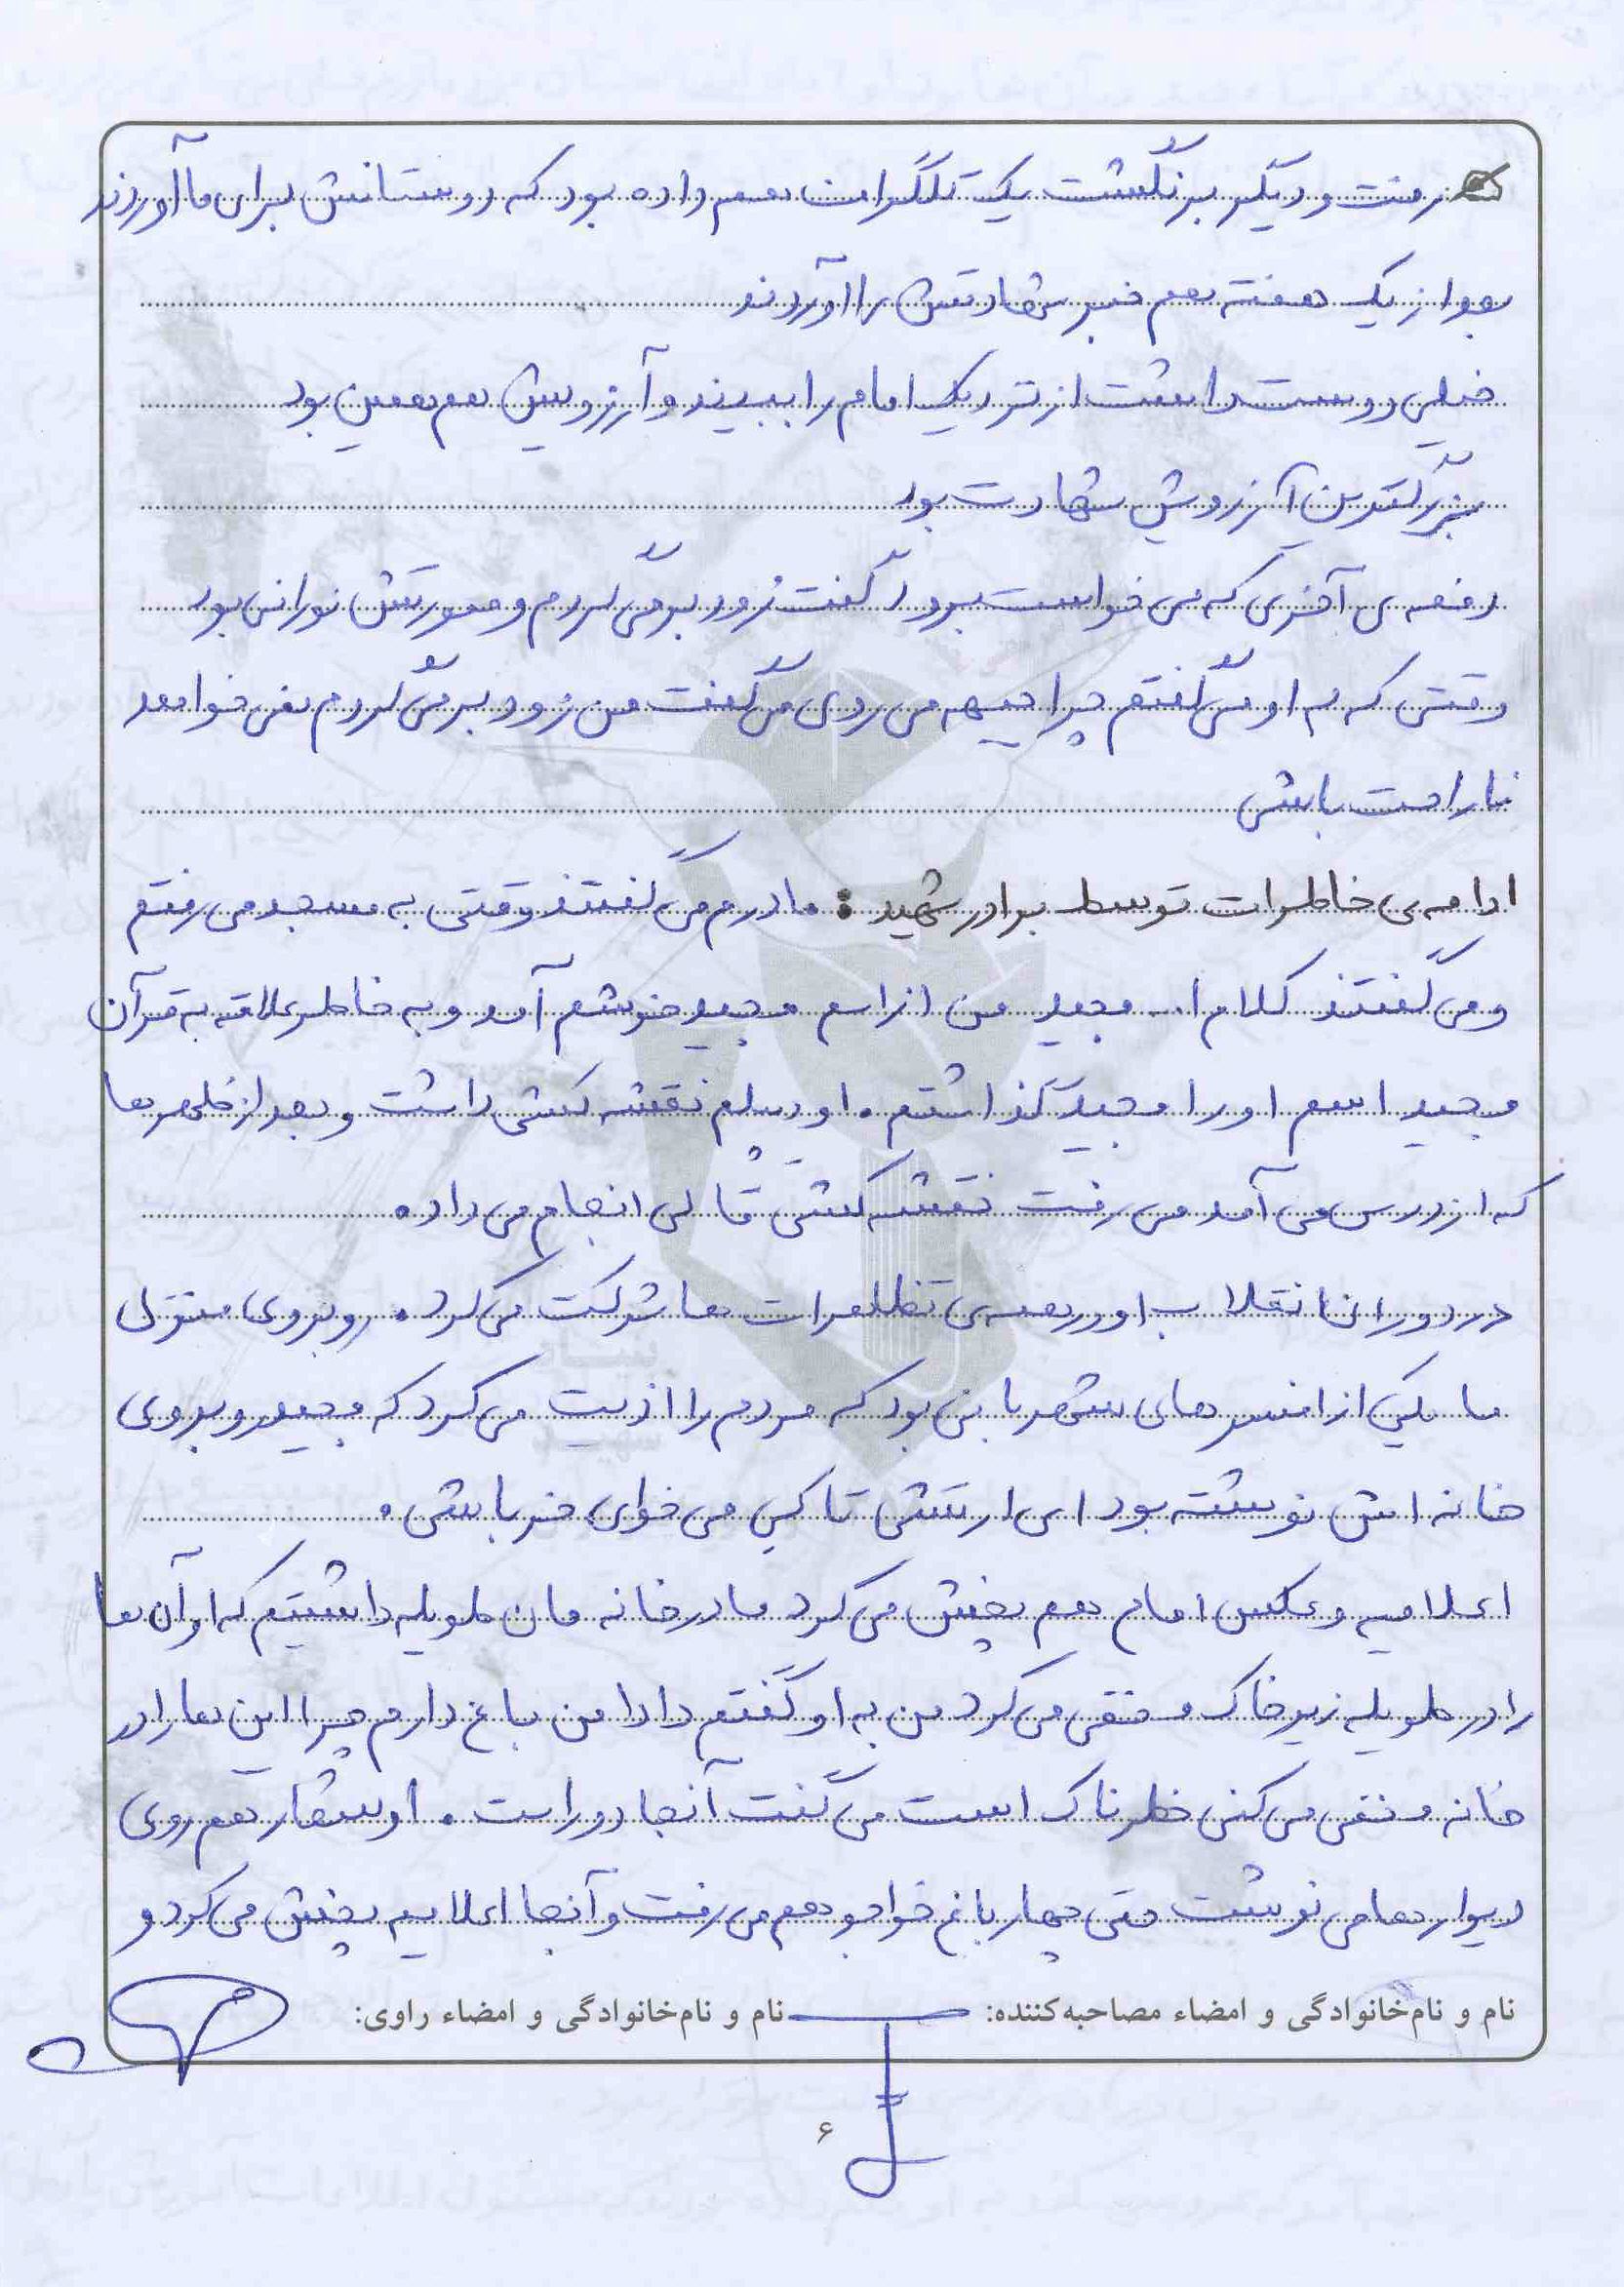 رفت و دیگر برنگشت یک تلگراف هم داده بود که دوستانش برای ما آوردند
بعد از یک هفته هم خبر شهادتش را آوردند
خیلی دوست داشت از نزدیک امام را ببیند و آرزویش هم همین بود
بزرگترین آرزویش شهادت بود
دفعه ی آخری که می خواست برود گفت زود برمی گردم و صورتش نورانی بود
وقتی که به او می گفتم چرا جبهه می روی می گفت من زود برمی گردم نمی خواهد
ناراحت باشی
ادامه ی خاطرات توسط برادر شهید : مادرم می گفتند وقتی به مسجد می رفتم
و می گفتند کلام ا... مجید من از اسم مجید خوشم آمد و به خاطر علاقه به قرآن
مجید اسم او را مجید گذاشتم . او دیپلم نقشه کشی داشت و بعد از ظهر ها
که از درس می آمد می رفت نقشه کشی قالی انجام می داد .
در دوران انقلاب او در همه ی تظاهرات ها شرکت می کرد . روبروی منزل
ما یکی از افسر های شهربانی بود که مردم را اذیت می کرد که مجید روبروی
خانه اش نوشته بود ای ارتشی تا کی می خوای خر باشی .
اعلامیه و عکس امام هم پخش می کرد ما در خانه مان طویله داشتیم که او آن ها
را در طویله زیر خاک مخفی می کرد من به او گفتم دادا من باغ دارم چرا این ها را در
خانه مخفی می کنی خطرناک است می گفت آنجا دور است . او شعار هم روی
دیوار ها می نوشت حتی چهارباغ خواجو هم می رفت و آنجا اعلامیه پخش می کرد و
نام و نام‌خانوادگی و امضاء مصاحبه‌کننده: نام و نام‌خانوادگی و امضاء راوی:
۶